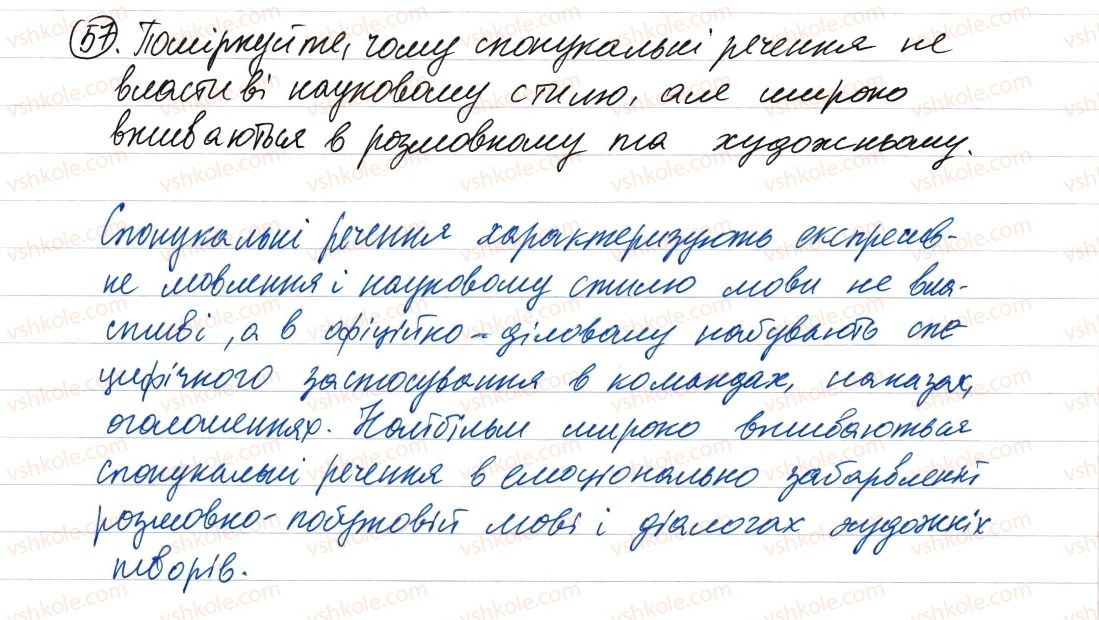 57. Поміркуйте, чому спонукальні речення не
властиві науковому стилю, але широко
вживаються в розмовному та художньому.
Спонукальні речення характеризують експресив-
не мовлення і науковому стилю мови не вла-
стиві, а в офіційно-діловому набувають спе
цифічного застосування в командах, наказах,
оголошеннях. Найбільш широко вживаються
спонукальні речення в емоціонально забарвленій
розмовно-побутовій мові і діалогах художніх
творів.